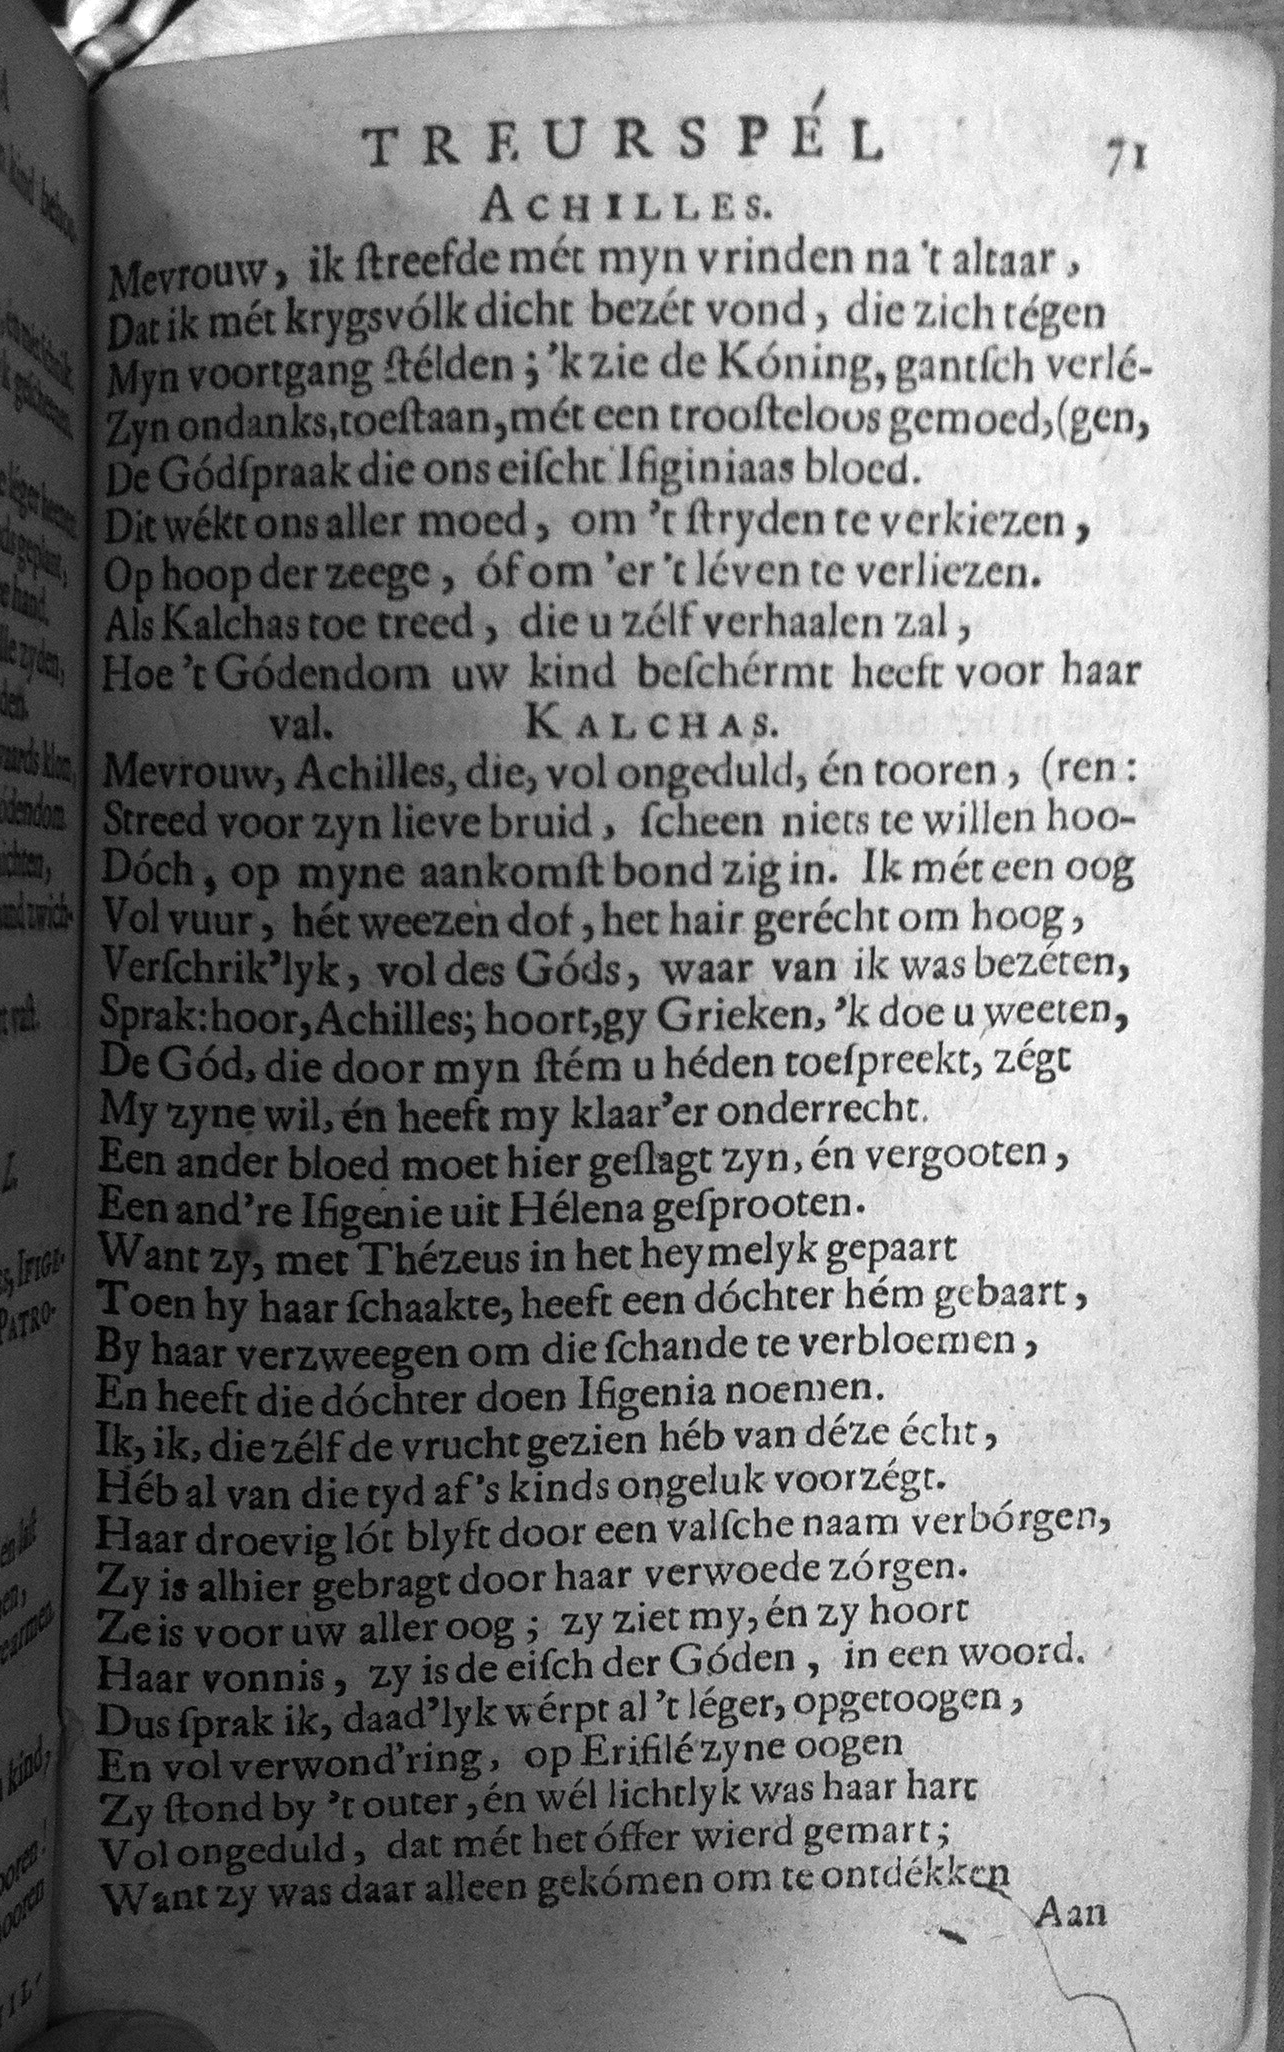 TREURSPÉL 71
ACHILLES.
Mevrouw, ik ſtreefde mét myn vrinden na 't altaar,
Dat ik mét krygsvólk dicht bezét vond, die zich tégen
Myn voortgang ſtélden; 'k zie de Kóning, gantſch verlé-
Zyn ondanks, toeſtaan, mét een trooſteloos gemoed, (gen,
De Gódſpraak die ons eiſcht Ifiginiaas bloed.
Dit wékt ons aller moed, om 't ſtryden te verkiezen,
Op hoop der zeege, óf om 'er 't léven te verliezen.
Als Kalchas toe treed, die u zélf verhaalen zal,
Hoe 't Gódendom uw kind beſchérmt heeft voor haar
val. KALCHAS.
Mevrouw, Achilles, die, vol ongeduld, én tooren, (ren:
Streed voor zyn lieve bruid, ſcheen niets te willen hoo-
Dóch, op myne aankomſt bond zig in. Ik mét een oog
Vol vuur, hét weezen dof, het hair gerécht om hoog,
Verſchrik'lyk, vol des Góds, waar van ik was bezéten,
Sprak: hoor, Achilles; hoort, gy Grieken, 'k doe u weeten,
De Gód, die door myn ſtém u héden toeſpreekt, zégt
My zyne wil, én heeft my klaar'er onderrecht.
Een ander bloed moet hier geſlagt zyn, én vergooten,
Een and're Ifigenie uit Hélena geſprooten.
Want zy, met Thézeus in het heymelyk gepaart
Toen hy haar ſchaakte, heeft een dóchter hém gebaart,
By haar verzweegen om die ſchande te verbloemen,
En heeft die dóchter doen Ifigenia noemen.
Ik, ik, die zélf de vrucht gezien héb van déze écht,
Héb al van die tyd af 's kinds ongeluk voorzégt.
Haar droevig lót blyft door een valſche naam verbórgen,
Zy is alhier gebragt door haar verwoede zórgen.
Ze is voor uw aller oog; zy ziet my, én zy hoort
Haar vonnis, zy is de eiſch der Góden, in een woord.
Dus ſprak ik, daad'lyk wérpt al 't léger, opgetoogen,
En vol verwond'ring, op Erifilé zyne oogen
Zy ſtond by 't outer, én wél lichtlyk was haar hart
Vol ongeduld, dat mét het óffer wierd gemart;
Want zy was daar alleen gekómen om te ontdékken
Aan